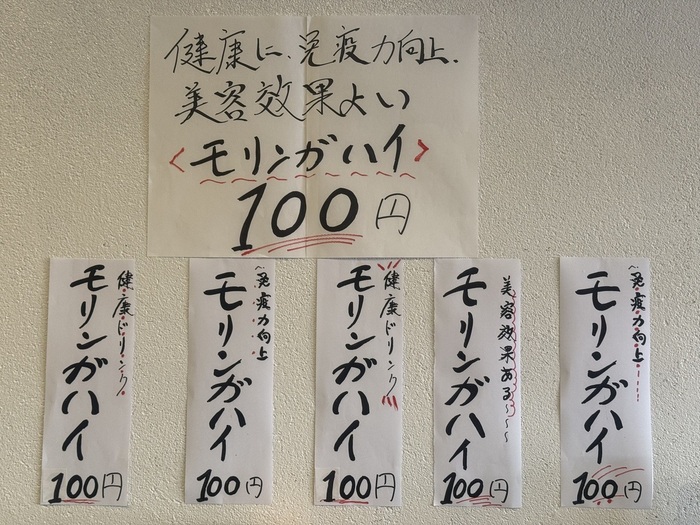 健康に、免疫力向上、
美容効果よい
<モリンガハイ>
100円
健康ドリンク
モリンガハイ
100円
〜免疫力向上
モリンガハイ
100円
健康ドリンク
モリンガハイ
100円
美容効果ある〜〜
モリンガハイ
100円
〜免疫力向上
モリンガハイ
100円